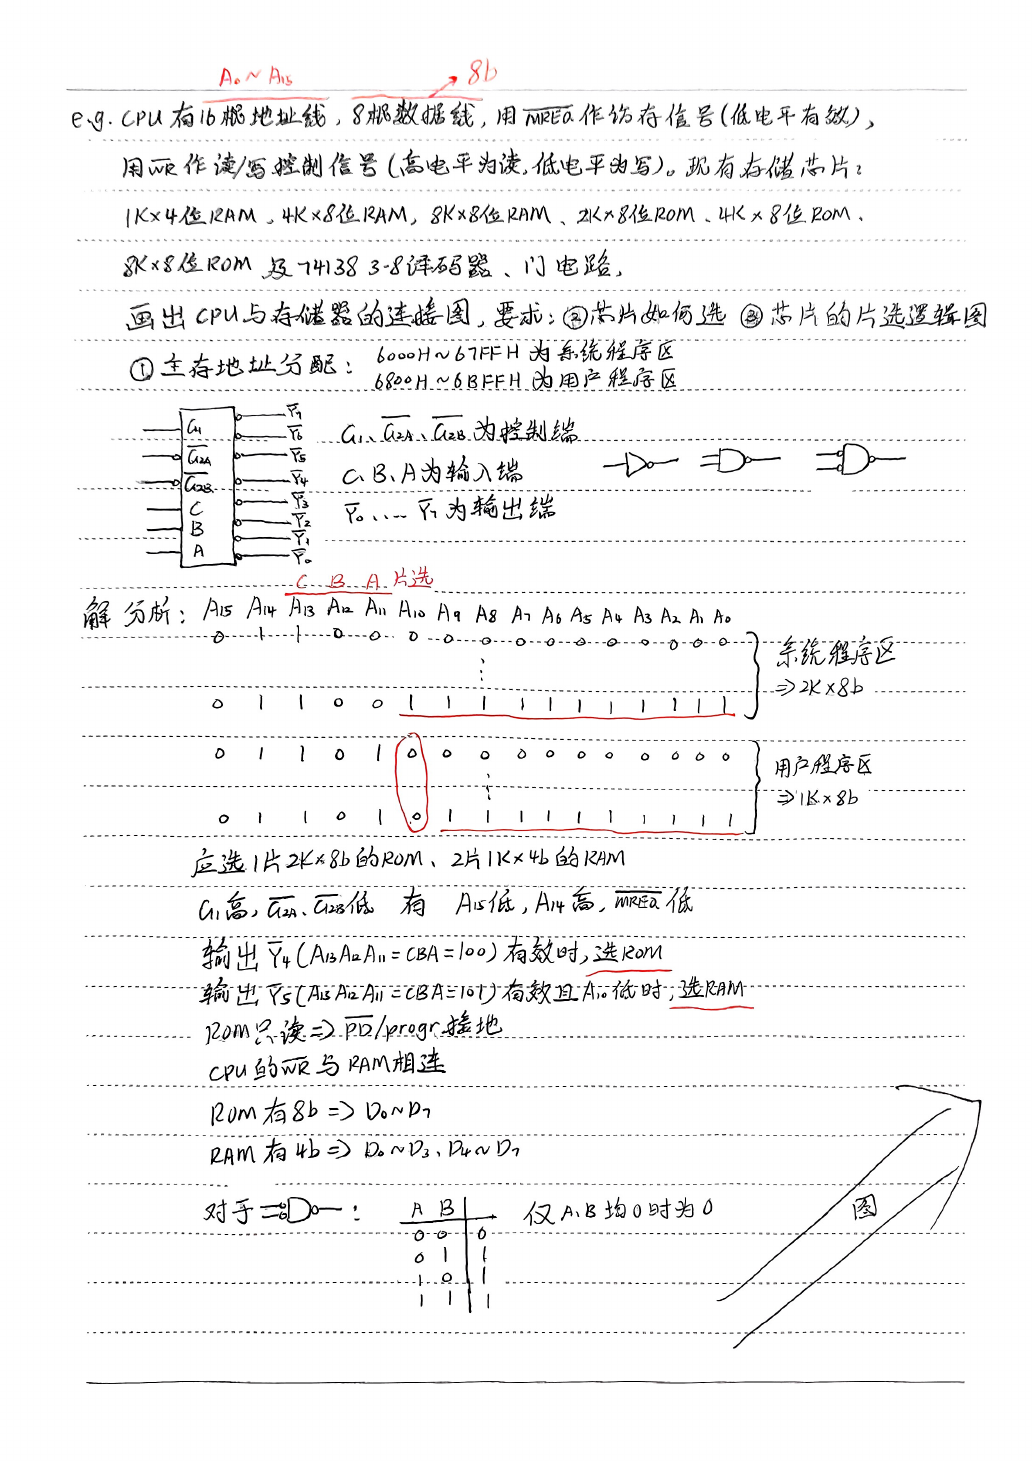 A₀~A₁₅ 8b
e.g. CPU有16根地址线，8根数据线，用M̅R̅E̅Q̅作访存信号(低电平有效)，
用W̅R̅作读/写控制信号(高电平为读，低电平为写)。现有存储芯片：
1K×4位RAM、4K×8位RAM，8K×8位RAM、2K×8位ROM、4K×8位ROM、
8K×8位ROM及74138 3-8译码器、门电路，
画出CPU与存储器的连接图，要求：②芯片如何选 ③芯片的片选逻辑图
①主存地址分配：6000H~67FFH为系统程序区
6800H~6BFFH为用户程序区
G₁ Y̅₇
Y̅₆
G̅₂A̅ Y̅₅
G̅₂B̅ Y̅₄
C Y̅₃
B Y̅₂
Y̅₁
A Y̅₀
G₁、G̅₂A̅、G̅₂B̅为控制端
C、B、A为输入端
Y̅₀、…… Y̅₇为输出端
C B A 片选
解 分析：A₁₅ A₁₄ A₁₃ A₁₂ A₁₁ A₁₀ A₉ A₈ A₇ A₆ A₅ A₄ A₃ A₂ A₁ A₀
0 1 1 0 0 0 0 0 0 0 0 0 0 0 0 0
系统程序区
⇒2K×8b
0 1 1 0 0 1 1 1 1 1 1 1 1 1 1 1
0 1 1 0 1 0 0 0 0 0 0 0 0 0 0 0
用户程序区
⇒1K×8b
0 1 1 0 1 0 1 1 1 1 1 1 1 1 1 1
应选1片2K×8b的ROM、2片1K×4b的RAM
G₁高，G̅₂A̅、G̅₂B̅低 有 A₁₅低，A₁₄高，M̅R̅E̅Q̅低
输出Y̅₄(A₁₃A₁₂A₁₁=CBA=100)有效时，选ROM
输出Y̅₅(A₁₃A₁₂A₁₁=CBA=101)有效且A₁₀低时，选RAM
ROM只读⇒P̅D̅/progr接地
CPU的W̅R̅与RAM相连
ROM有8b⇒D₀~D₇
RAM有4b⇒D₀~D₃、D₄~D₇
对于 ： A B 仅A、B均0时为0
0 0 0
0 1 1
1 0 1
1 1 1
图